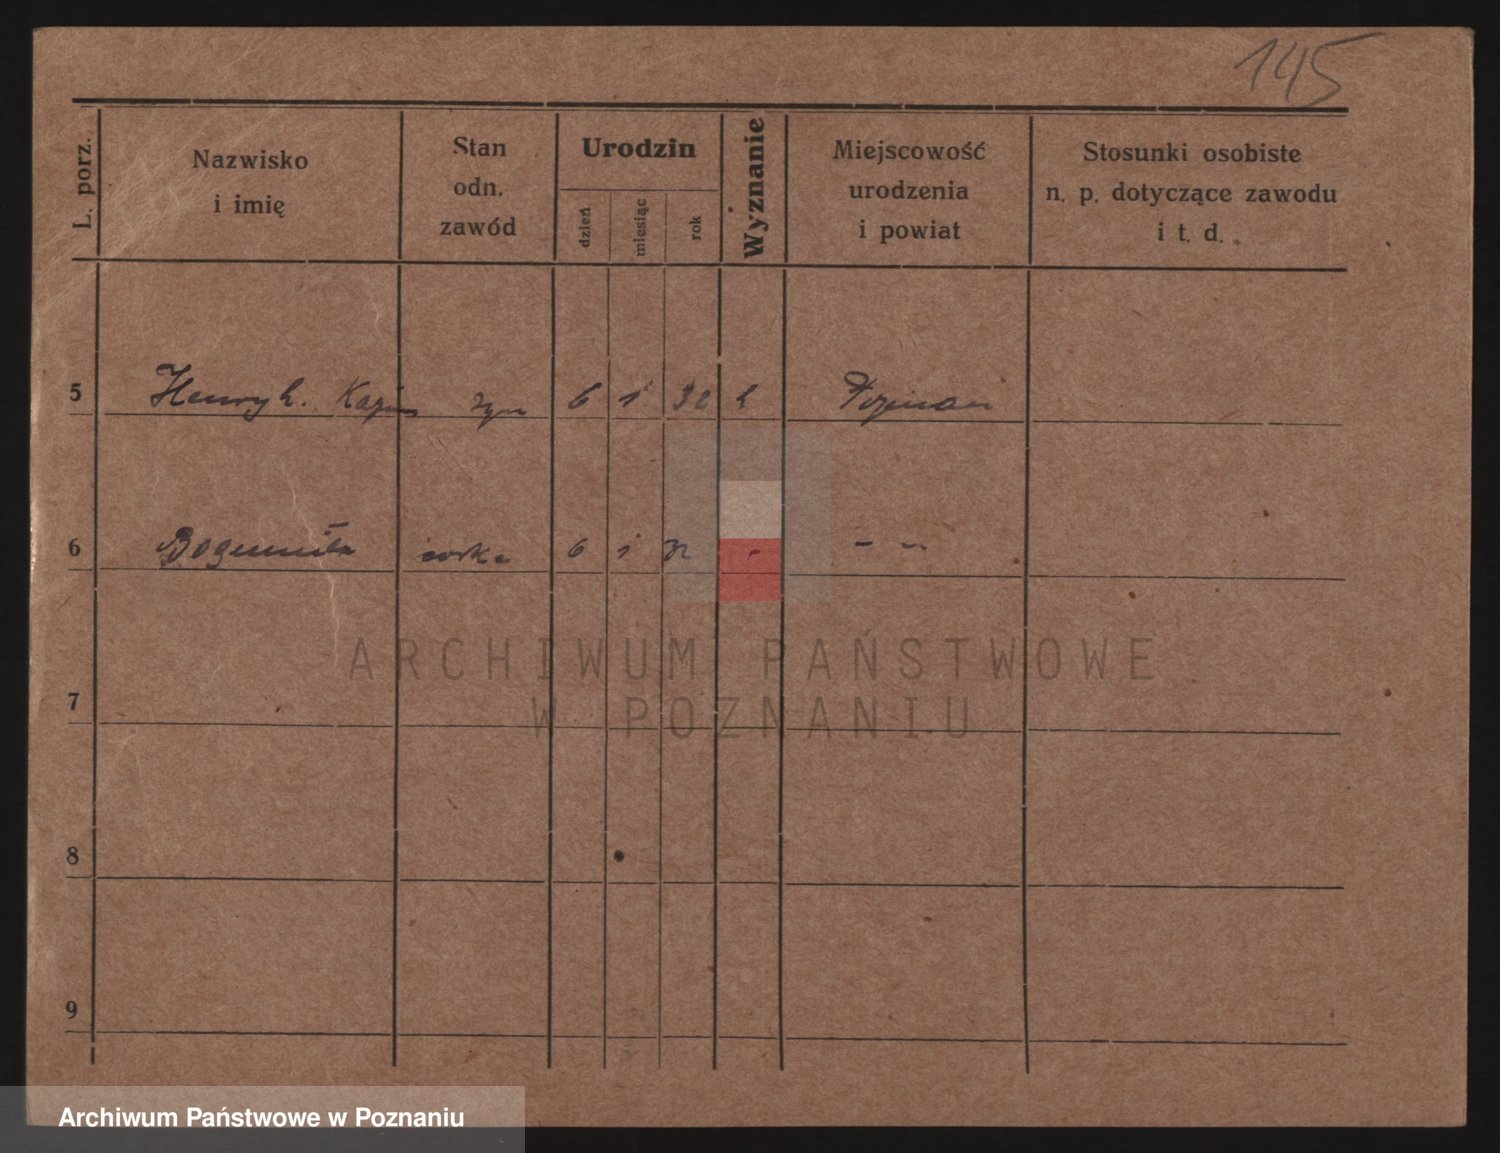 145
L. porz.
Nazwisko
i imię
Stan
odn.
zawód
Urodzin
dzień
miesiąc
rok
Wyznanie
Miejscowość
urodzenia
i powiat
Stosunki osobiste
n. p. dotyczące zawodu
i t. d.
5 Henryk. Kazim syn 6 1 32 k Poznań
6 Bogumiła córka 6 1 32 - - -
ARCHIWUM PAŃSTWOWE
W POZNANIU
7
8
9
Archiwum Państwowe w Poznaniu